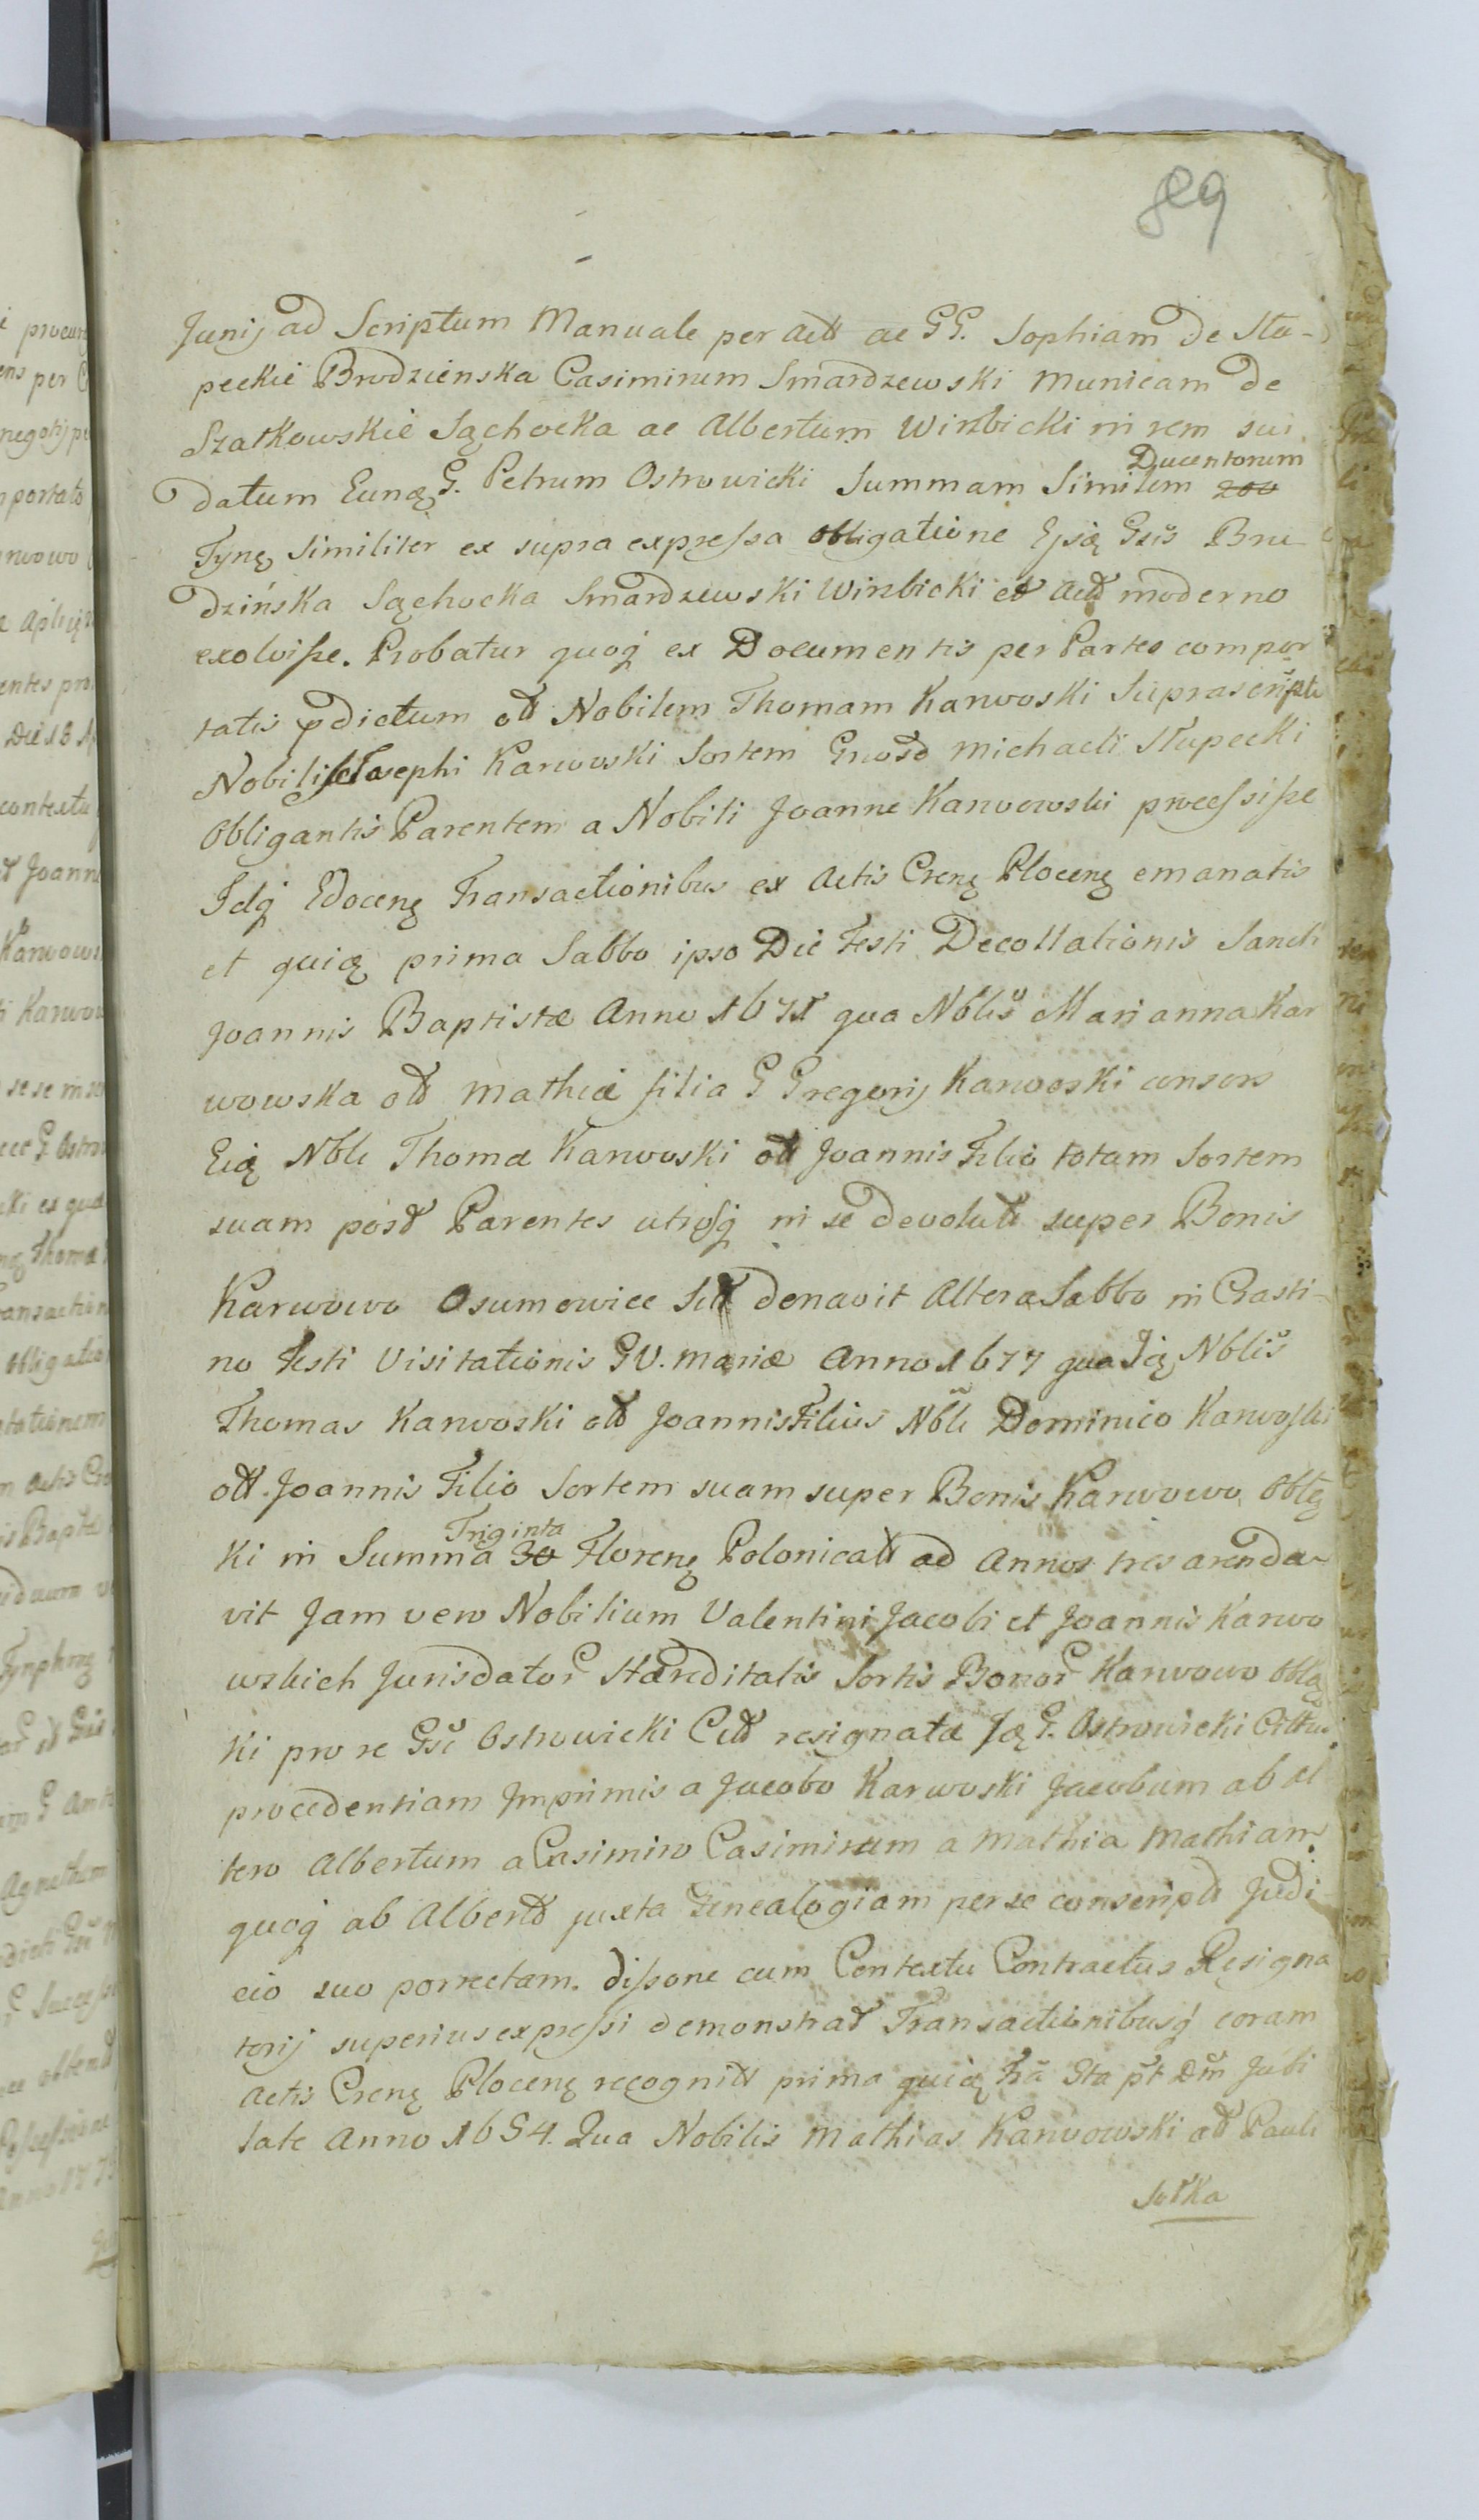 829
Junij ad Scriptum Manuale per actt ac GG. Sophiam de Stu-
peckie Brodzienska Casimirum Smardzewski Municam de
Szatkowskie Sąchocka ac Albertum Wirzbicki in rem sui
Ducentorum
datum Eunq G. Petrum Ostrowicki Summam Similem 200
Tynq Similiter ex supra expressa obligatione Ejsq Gsis Bru-
dzińska Sąchocka Smardzewski Wirzbicki et actt moderno
exolvisse. Probatur quoq ex Documentis per Partes compor
tatis pdictum ott Nobilem Thomam Karwoski Suprascripti
Nobilis Josephi Karwoski Sortem Gnosd Michaeli Stupecki
Obligantis Parentem a Nobili Joanne Karwowski processisse
Idq Edocenq Transactionibus ex Actis Crenq Plocenq emanatis
et quiq prima Sabbo ipso Die Festi Decollationis Sancti
Joannis Baptistæ Anno 1671 qua Nblis Marianna Kar
wowska ott Mathiæ filia G Gregorij Karwoski consors
Eiq Nbli Thomæ Karwoski ott Joannis Filio totam Sortem
suam post Parentes utrosq in se devolutt super Bonis
Karwowo Osumowice Sitt donavit Altera Sabbo in Crasti-
no Festi Visitationis GV. Mariæ Anno 1677 qua Iq Nblis
Thomas Karwoski ott Joannis Filius Nbli Dominico Karwoski
ott. Joannis Filio Sortem suam super Bonis Karwowo Obłq
Triginta
ki in Summa 30 Florenq Polonicatt ad Annos tres arenda-
vit Jam vero Nobilium Valentini Jacobi et Joannis Karwo
wskich Jurisdator Hæreditatis Sortis Bonor Karwowo Obłą
ki pro re Gsi Ostrowicki Citt resignatæ Iq G. Ostrowicki Citus
procedentiam Imprimis a Jacobo Karwoski Jacobum ab al
tero Albertum a Casimiro Casimirum a Mathia Mathiam
quoq ab Albertt juxta Genealogiam per se conscriptt Judi-
cio suo porrectam. dissone cum Contextu Contractus Resigna
torij superius expressi demonstratt Transactionibusq coram
Actis Crenq Plocenq recognitt prima quiq Fra 3ta pt Dm Jubi
late Anno 1654. Qua Nobilis Mathias Karwowski ott Pauli
Sotka